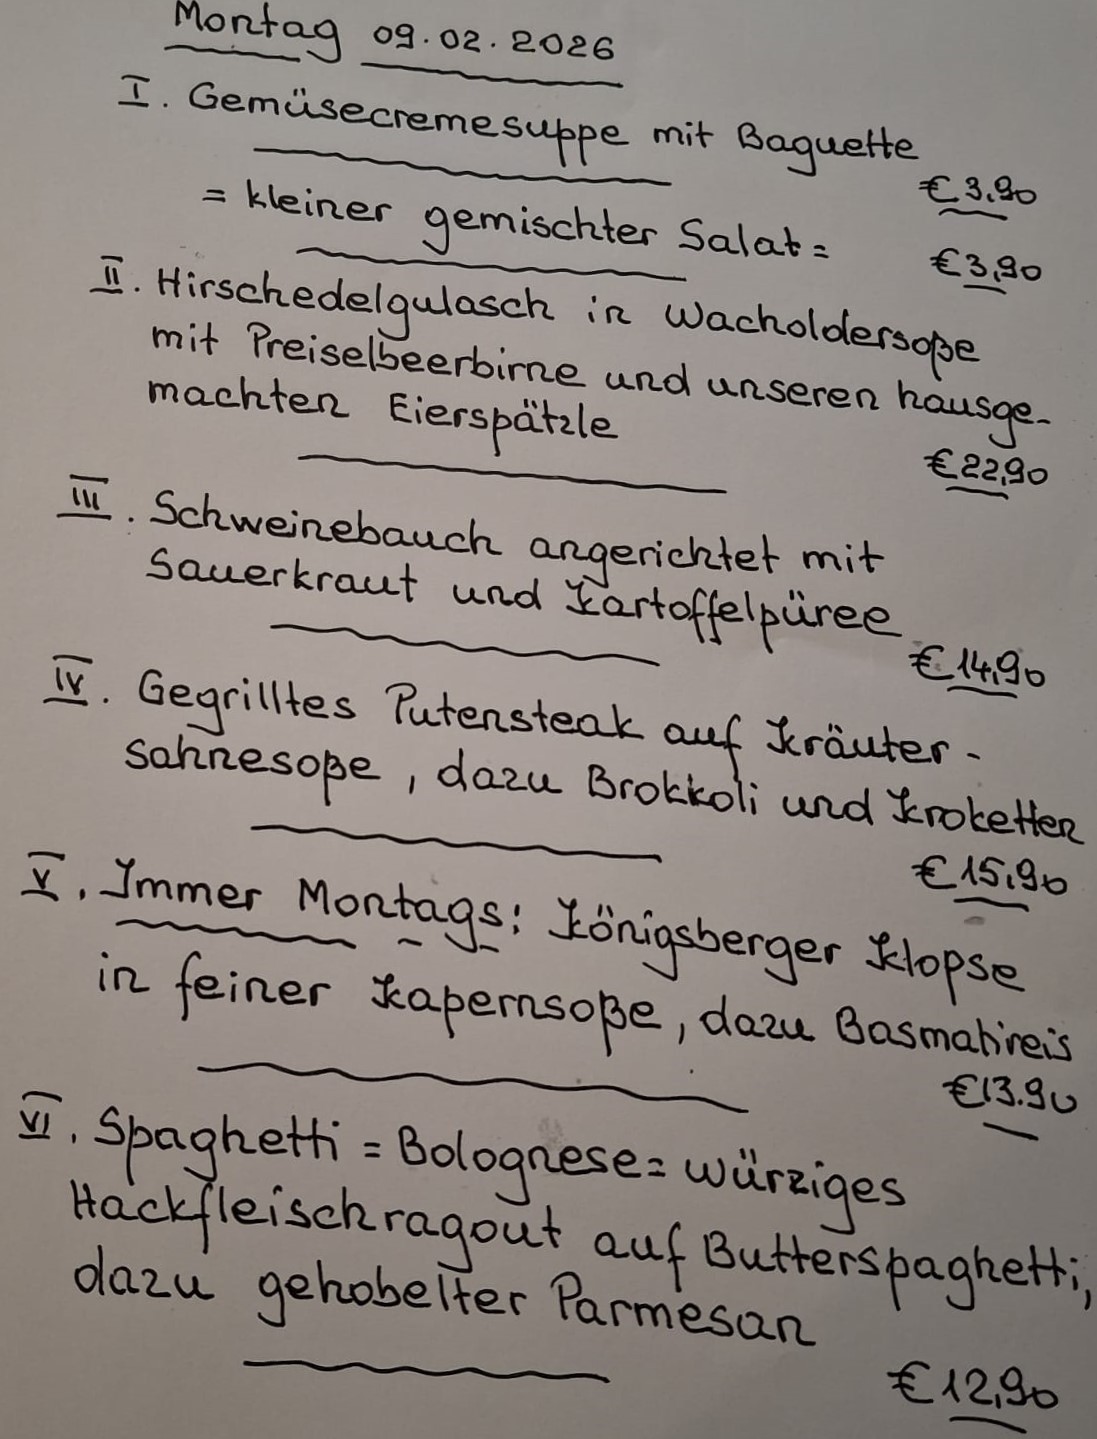 Montag 09.02.2026
I. Gemüsecremesuppe mit Baguette
€3.90
= kleiner gemischter Salat =
€3,90
II. Hirschedelgulasch in Wacholdersoße
mit Preiselbeerbirne und unseren hausge-
machten Eierspätzle
€22,90
III. Schweinebauch angerichtet mit
Sauerkraut und Kartoffelpüree
€14,90
IV. Gegrilltes Putensteak auf Kräuter-
sahnesoße, dazu Brokkoli und Kroketten
€15,90
V. Immer Montags: Königsberger Klopse
in feiner Kapernsoße, dazu Basmatireis
€13.90
VI. Spaghetti = Bolognese = würziges
Hackfleischragout auf Butterspaghetti,
dazu gehobelter Parmesan
€12,90